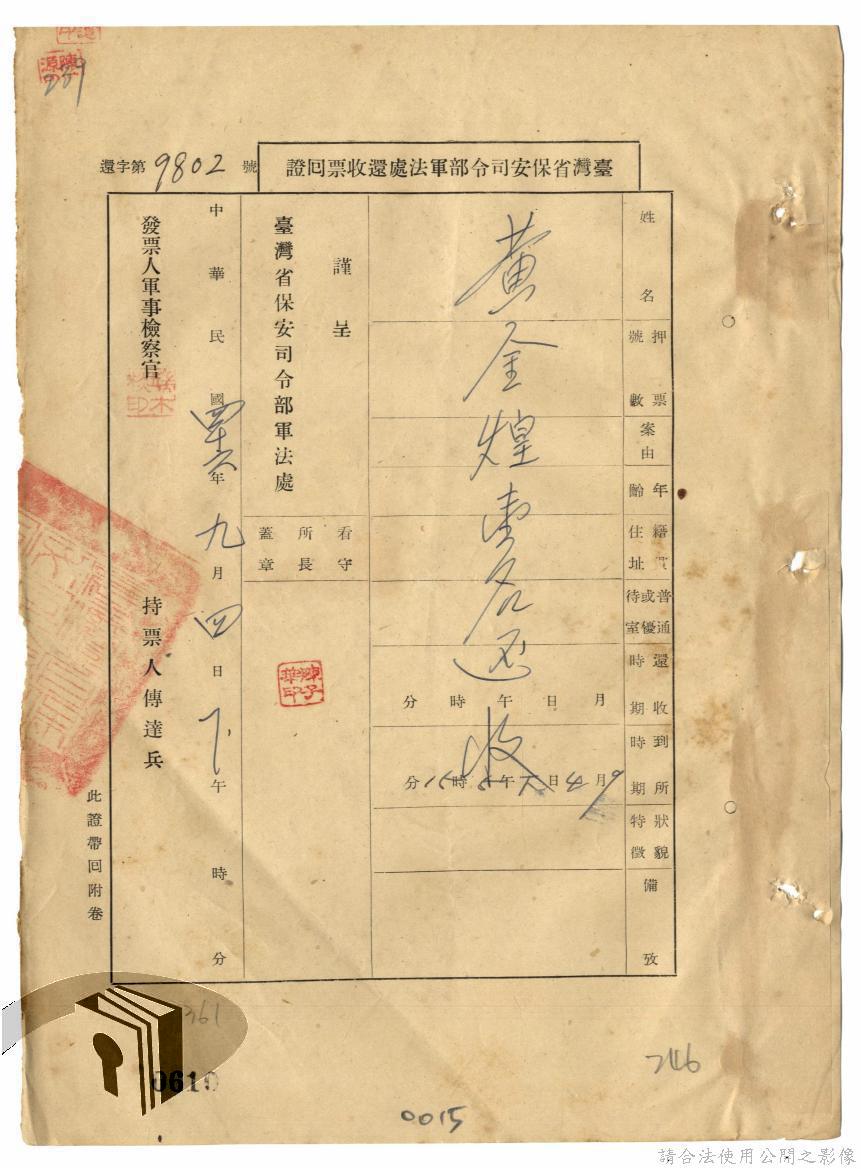 臺灣省保安司令部軍法處還收票回證
還字第9802號
姓名
押票號數
案由
年齡
籍貫住址
普通或優待室
還收時期
月 日 午 時 分
到所時期
9月4日下午5時15分
狀貌特徵
備攷
黃金煌壹名還收
謹呈
臺灣省保安司令部軍法處
看守所長蓋章
中華民國 年九月四日下午 時 分
發票人軍事檢察官
持票人傳達兵
此證帶回附卷
361
0610
0015
246
請合法使用公開之影像